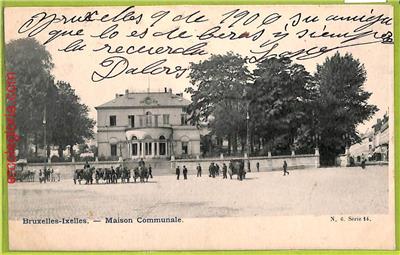 Bruxelles 9 de 1900, su amiga
que lo es de beras y siempre
la recuerda
Dolores
Bruxelles-Ixelles. — Maison Communale.
N. 6. Série 14.